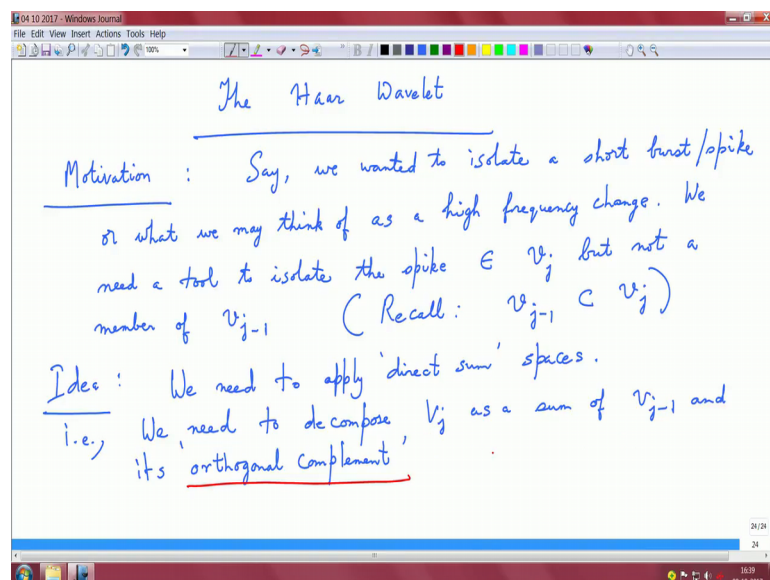 04 10 2017 - Windows Journal
File Edit View Insert Actions Tools Help
100%
The Haar Wavelet
Motivation : Say, we wanted to isolate a short burst/spike
or what we may think of as a high frequency change. We
need a tool to isolate the spike ∈ V_j but not a
member of V_{j-1} (Recall: V_{j-1} ⊂ V_j)
Idea : We need to apply 'direct sum' spaces.
i.e., We need to decompose V_j as a sum of V_{j-1} and
its 'orthogonal complement'
24/24
24
16:39